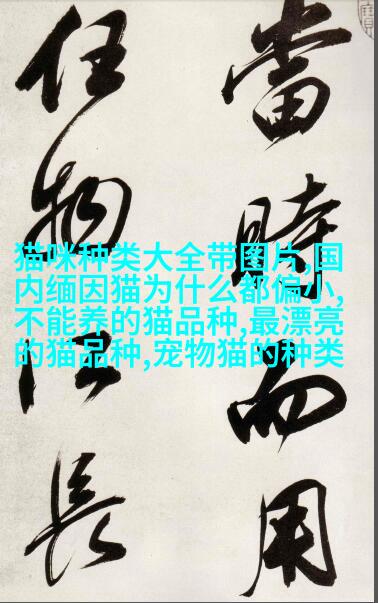 當時而用
任物長
猫咪种类大全带图片,国
内缅因猫为什么都偏小,
不能养的猫品种,最漂亮
的猫品种,宠物猫的种类